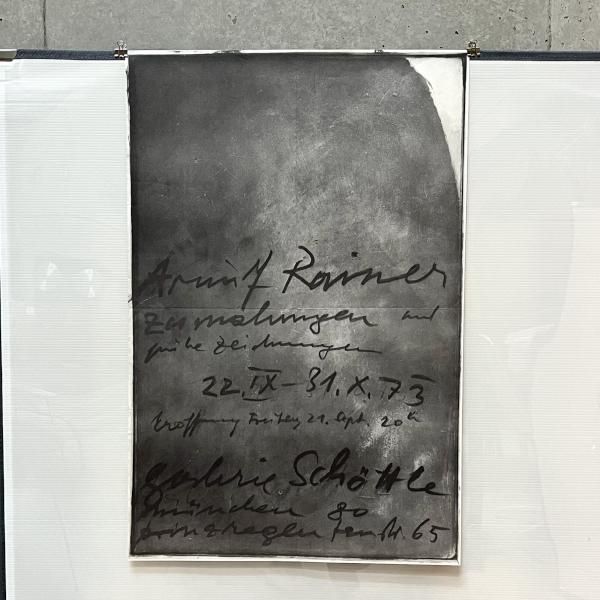 Arnulf Rainer
zumalungen und
frühe zeichnungen
22.IX-31.X.73
Eröffnung Freitag 21. Sept. 20h
galerie Schöttle
münchen 80
prinzregentenstr. 65